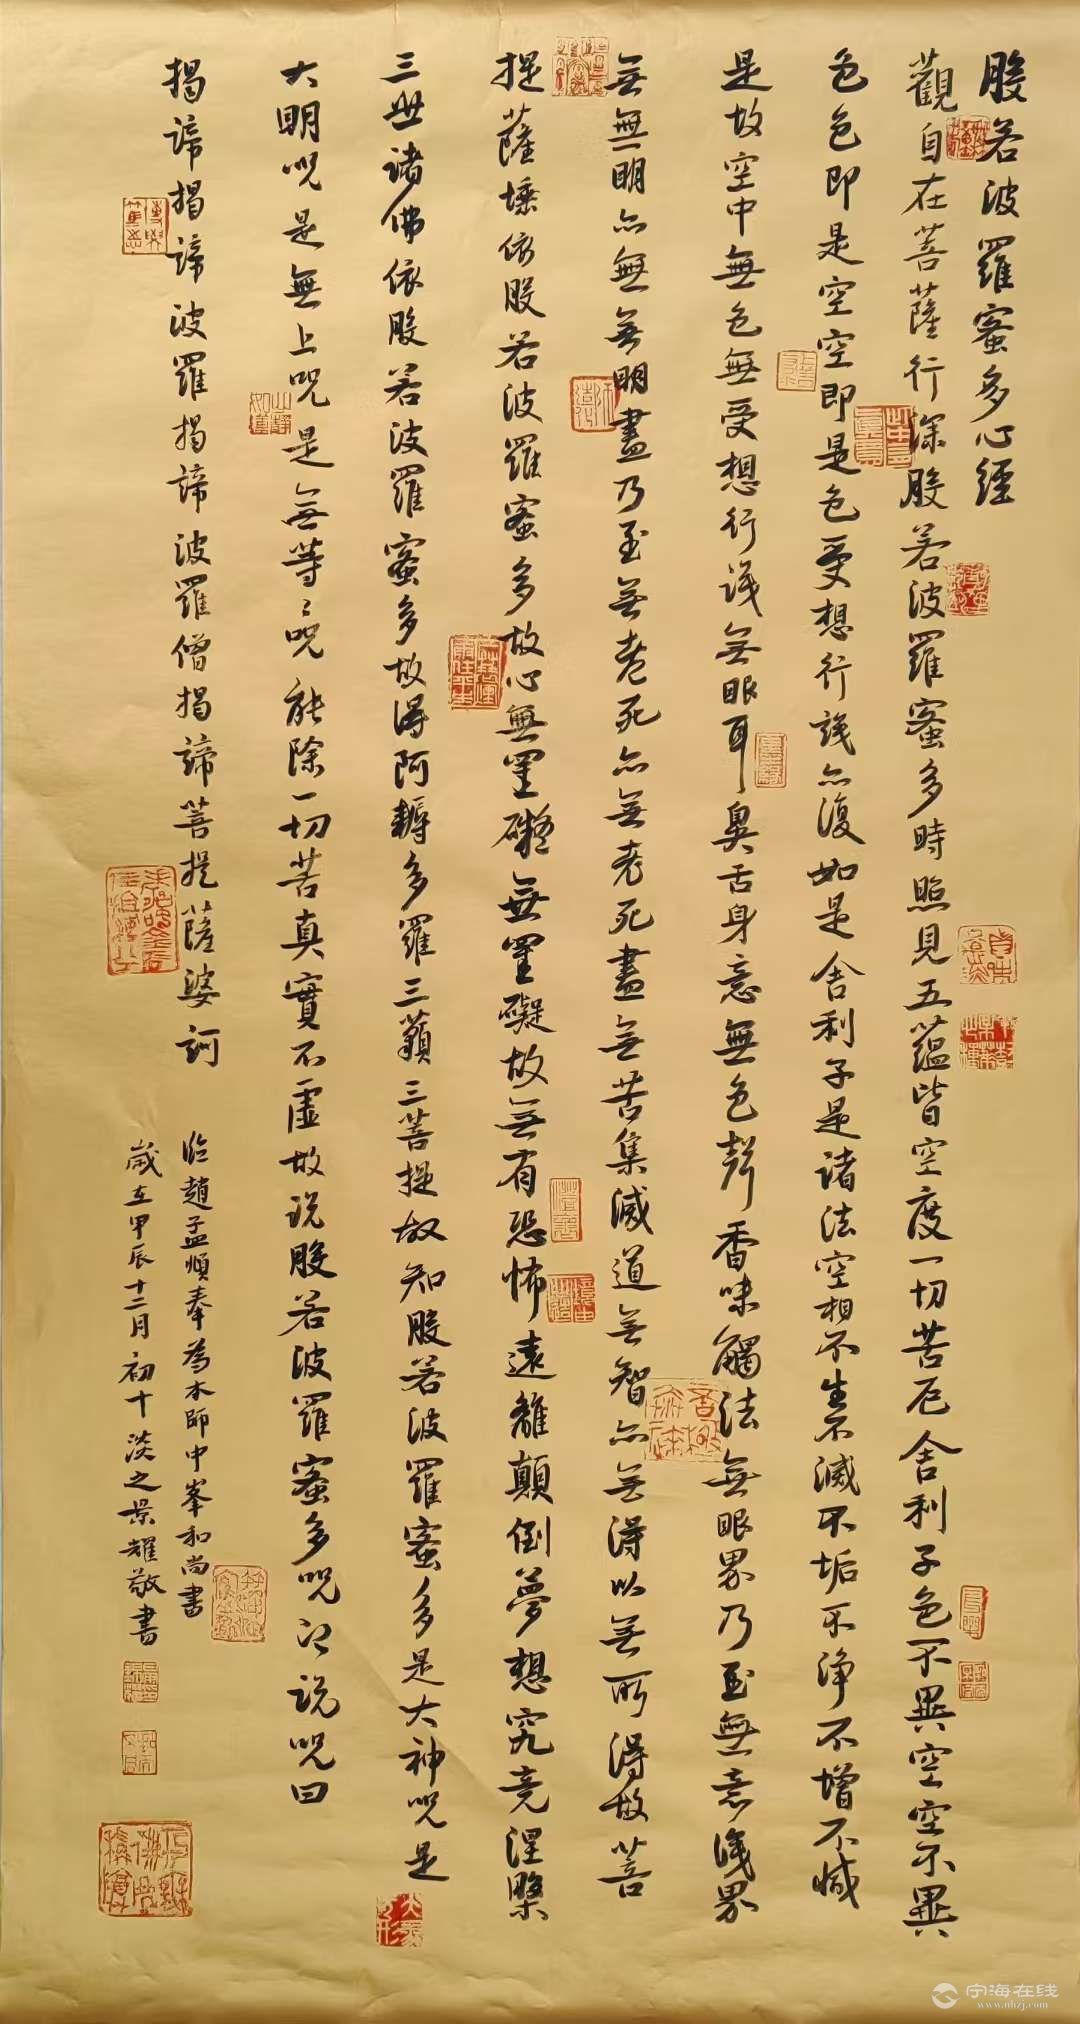 般若波羅蜜多心經
觀自在菩薩行深般若波羅蜜多時照見五蘊皆空度一切苦厄舍利子色不異空空不異
色色即是空空即是色受想行識亦復如是舍利子是諸法空相不生不滅不垢不淨不增不減
是故空中無色無受想行識無眼耳鼻舌身意無色聲香味觸法無眼界乃至無意識界
無無明亦無無明盡乃至無老死亦無老死盡無苦集滅道無智亦無得以無所得故菩
提薩埵依般若波羅蜜多故心無罣礙無罣礙故無有恐怖遠離顛倒夢想究竟涅槃
三世諸佛依般若波羅蜜多故得阿耨多羅三藐三菩提故知般若波羅蜜多是大神咒是
大明咒是無上咒是無等々咒能除一切苦真實不虛故說般若波羅蜜多咒即說咒曰
揭諦揭諦波羅揭諦波羅僧揭諦菩提薩婆訶
臨趙孟頫奉為本師中峯和尚書
歲在甲辰十二月初十淡之景耀敬書
宁海在线
www.nhzj.com